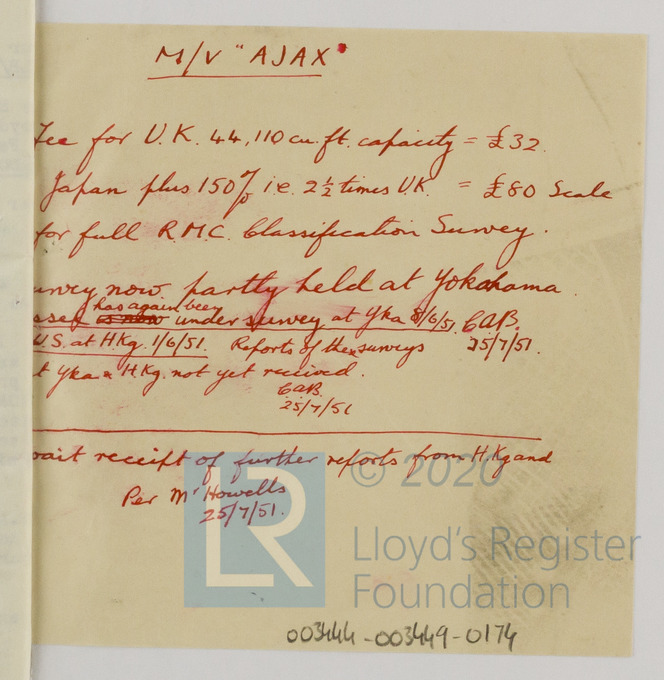 M/V "AJAX"
Fee for U.K. 44,110 cu.ft. capacity = £32.
Japan plus 150% i.e. 2½ times UK. = £80 Scale
for full R.M.C. Classification Survey.
urvey now partly held at Yokohama
has again been
ssel is now under survey at Yka 8/6/51. CAB.
U.S. at H.Kg. 1/6/51. Reports of these surveys 25/7/51.
t Yka & H.Kg. not yet received.
CAB.
25/7/51
wait receipt of further reports from H.Kg and
Per Mr Howells
25/7/51.
© 2020
LR
Lloyd's Register
Foundation
003444-003449-0174